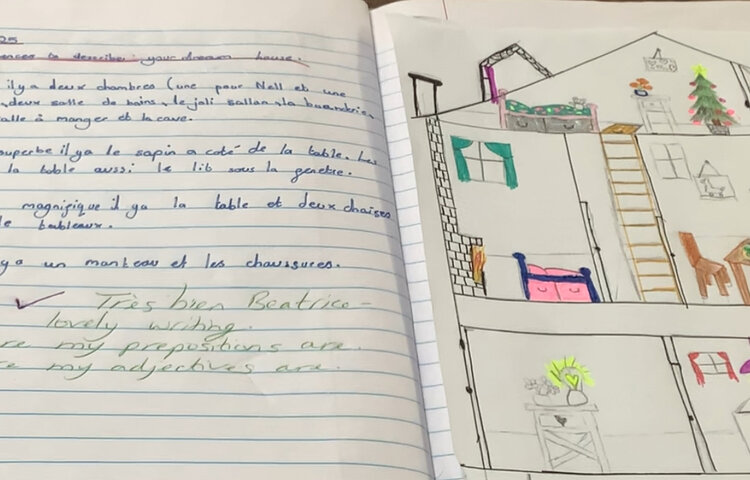 25
ences to describe: your dream house.
il y a deux chambres (une pour Nell et une
, deux salle de bains, le joli sallan, la buandrie,
alle à manger et la cave.
superbe il ya le sapin a coté de la table. Les
la table aussi le lib sous la genetre.
magnifique il ya la table et deux chaises
le tableaux.
y a un manteau et les chaussures.
✓ Très bien Beatrice –
lovely writing.
re my prepositions are.
re my adjectives are.